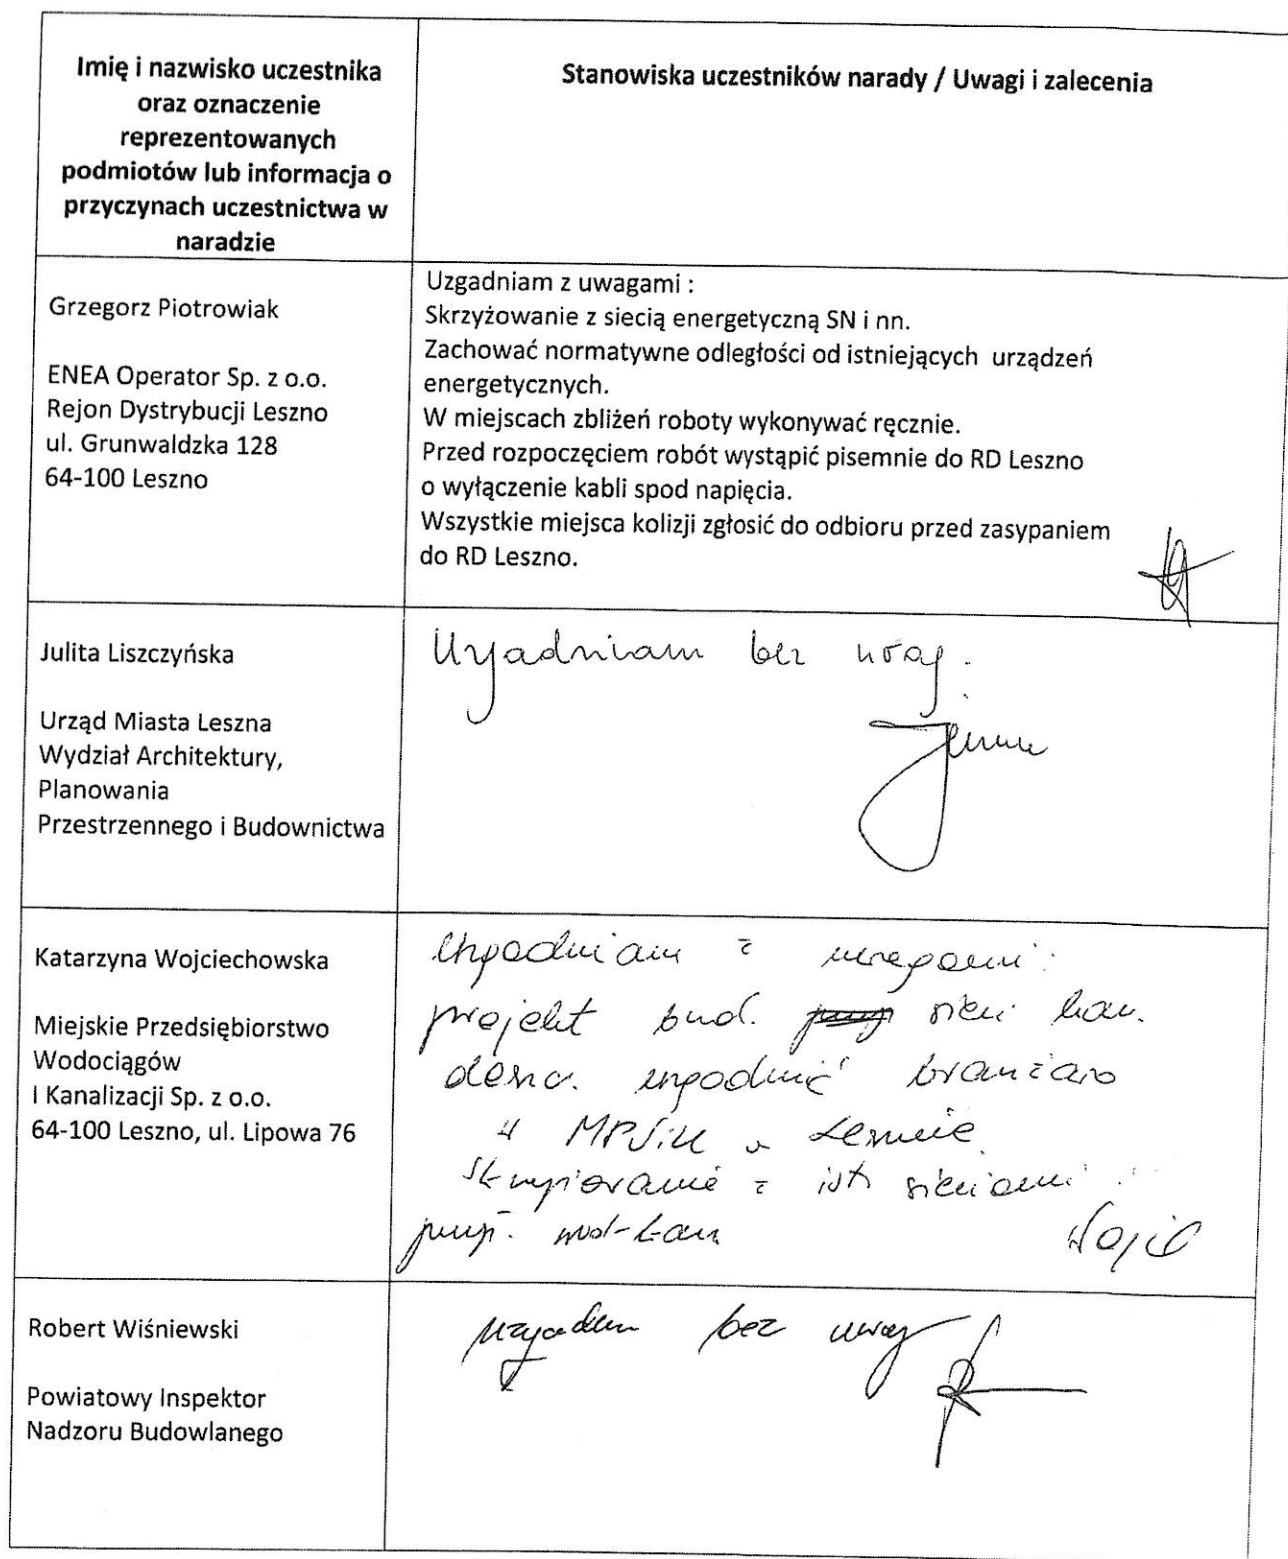 Imię i nazwisko uczestnika
oraz oznaczenie
reprezentowanych
podmiotów lub informacja o
przyczynach uczestnictwa w
naradzie
Stanowiska uczestników narady / Uwagi i zalecenia
Grzegorz Piotrowiak
ENEA Operator Sp. z o.o.
Rejon Dystrybucji Leszno
ul. Grunwaldzka 128
64-100 Leszno
Uzgadniam z uwagami :
Skrzyżowanie z siecią energetyczną SN i nn.
Zachować normatywne odległości od istniejących urządzeń
energetycznych.
W miejscach zbliżeń roboty wykonywać ręcznie.
Przed rozpoczęciem robót wystąpić pisemnie do RD Leszno
o wyłączenie kabli spod napięcia.
Wszystkie miejsca kolizji zgłosić do odbioru przed zasypaniem
do RD Leszno.
Julita Liszczyńska
Urząd Miasta Leszna
Wydział Architektury,
Planowania
Przestrzennego i Budownictwa
Uzgadniam bez uwag.
Katarzyna Wojciechowska
Miejskie Przedsiębiorstwo
Wodociągów
I Kanalizacji Sp. z o.o.
64-100 Leszno, ul. Lipowa 76
Uzgadniam z uwagami:
projekt bud. sieci kan.
deszcz. uzgodnić branżowo
w MPWiK w Lesznie.
Skrzyżowanie z ist. sieciami
przył. wod-kan
Robert Wiśniewski
Powiatowy Inspektor
Nadzoru Budowlanego
uzgadniam bez uwag